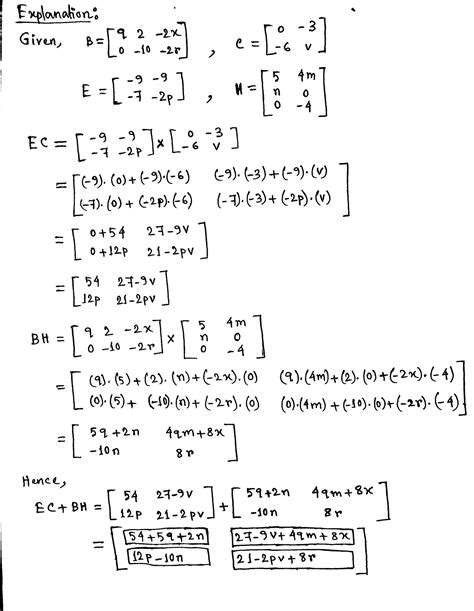 Explanation:
Given, B = [q 2 -2x; 0 -10 -2r] , C = [0 -3; -6 v]
E = [-9 -9; -7 -2p] , H = [5 4m; n 0; 0 -4]
EC = [-9 -9; -7 -2p] × [0 -3; -6 v]
= [(-9).(0)+(-9).(-6) (-9).(-3)+(-9).(v); (-7).(0)+(-2p).(-6) (-7).(-3)+(-2p).(v)]
= [0+54 27-9v; 0+12p 21-2pv]
= [54 27-9v; 12p 21-2pv]
BH = [q 2 -2x; 0 -10 -2r] × [5 4m; n 0; 0 -4]
= [(q).(5)+(2).(n)+(-2x).(0) (q).(4m)+(2).(0)+(-2x).(-4); (0).(5)+(-10).(n)+(-2r).(0) (0).(4m)+(-10).(0)+(-2r).(-4)]
= [5q+2n 4qm+8x; -10n 8r]
Hence,
EC+BH = [54 27-9v; 12p 21-2pv] + [5q+2n 4qm+8x; -10n 8r]
= [54+5q+2n 27-9v+4qm+8x; 12p-10n 21-2pv+8r]